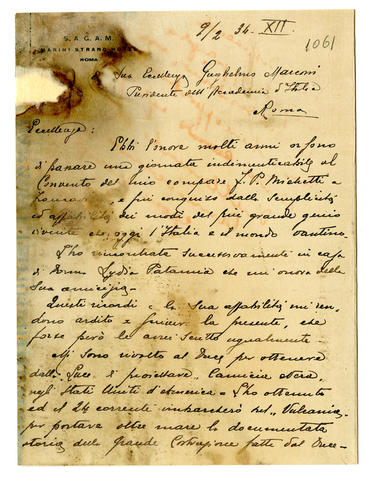 S.A.G.A.M.
MARINI STRAND HOTEL
ROMA
9/2 34 - XII.
1061
a Sua Eccellenza Guglielmo Marconi
Presidente dell'Accademia d'Italia
Roma
Eccellenza:
Ebbi l'onore molti anni or sono
di passare una giornata indimenticabile al
Convento del mio compare F. P. Michetti a
e fui conquiso dalla semplicità
ed affabilità dei modi del più grande genio
vivente che oggi l'Italia e il mondo vantino.
L'ho rincontrata successivamente in casa
di Donna Lydia che mi onora della
Sua amicizia.
Questi ricordi e la Sua affabilità mi ren-
dono ardito a la presente, che
forse però le avrei scritto ugualmente.
Mi sono rivolto al Duce per ottenere
dalla Luce di proiettare Camicia Nera,
negli Stati Uniti d'America - L'ho ottenuto
ed il 24 corrente imbarcherò sul "Vulcania"
per portare oltre mare la documentata
storia della Grande Costruzione fatta dal Duce -